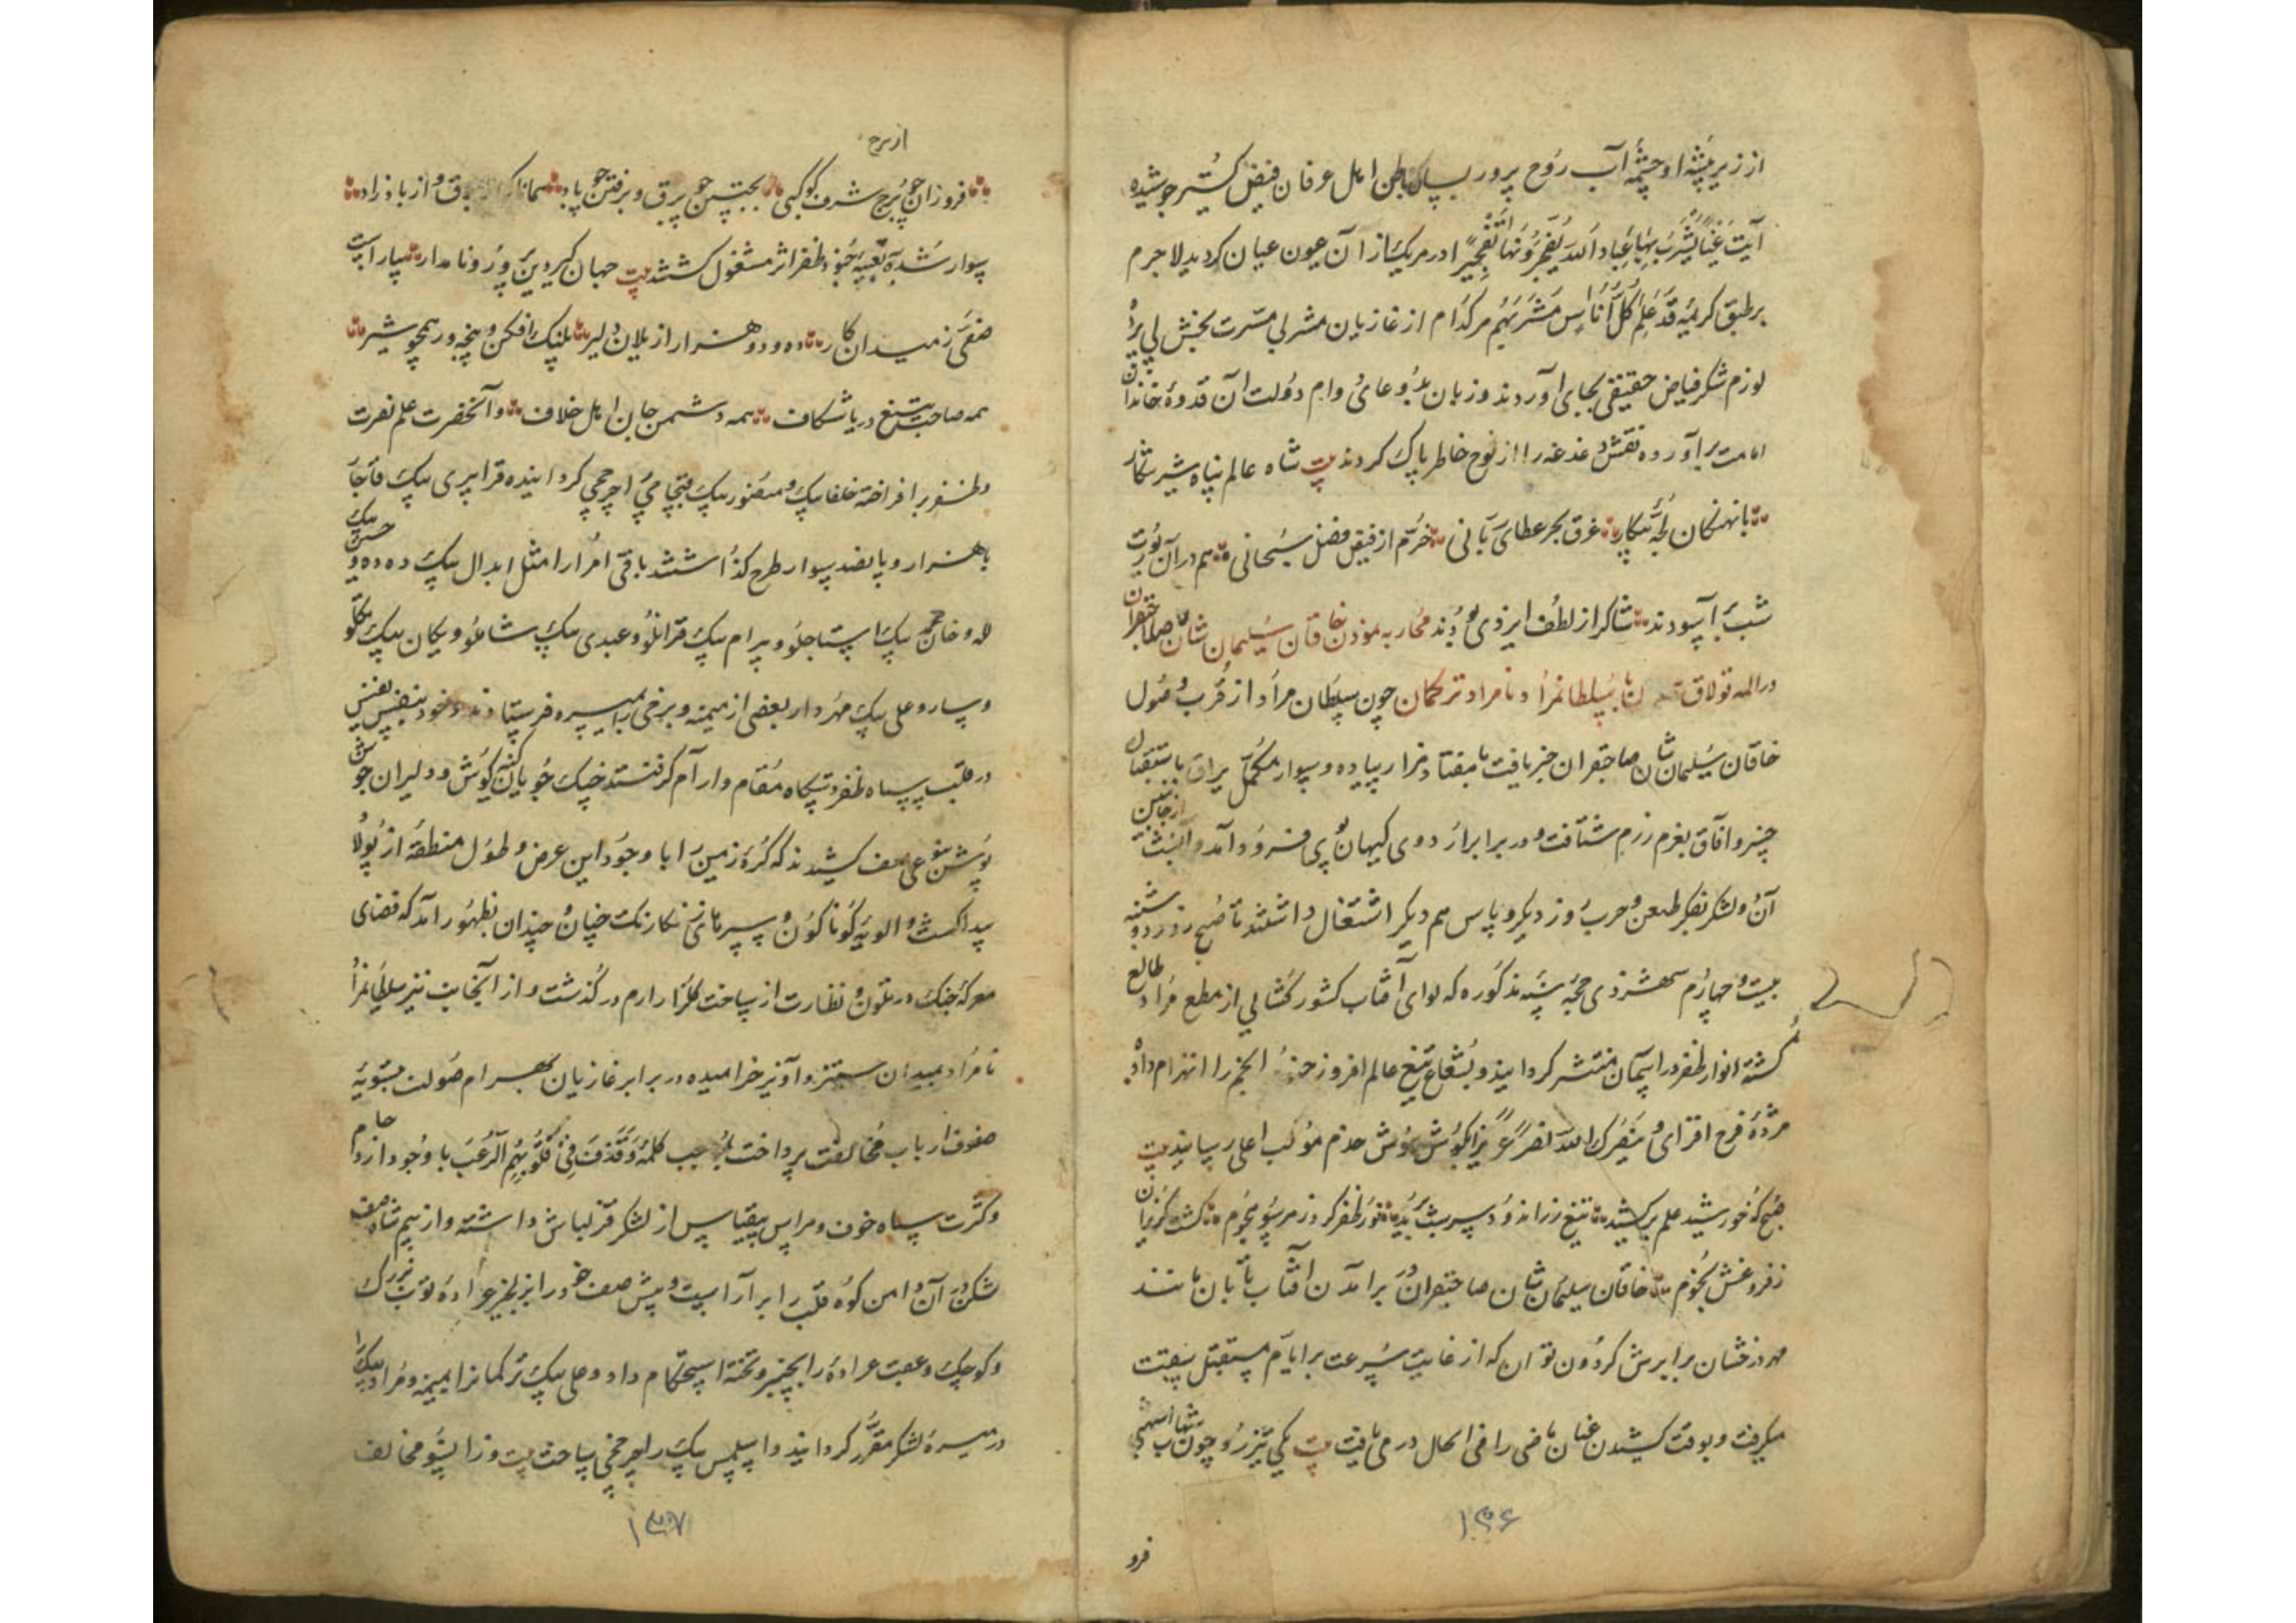 از زیر تیشهٔ او چشمهٔ آب روح پرور بسان باطن اهل عرفان فیض گستر جوشیده
آیت عینا یشرب بها عباد الله یفجرونها تفجیرا در هر یک از آن عیون عیان گردید لاجرم
بر طبق کریمهٔ قد علم کل اناس مشربهم هر کدام از غازیان مشربی مسرت بخش پی برده
لوازم شکر فیاض حقیقی بجای آوردند و زبان بدعای دوام دولت آن قدوهٔ خاندان
امامت برآورده نقش دغدغه را از لوح خاطر پاک کردند بیت شاه عالم پناه شیر شکار
با نهنگان لجهٔ پیکار غرق بحر عطای ربانی خرم از فیض فضل سبحانی هم در آن یورت
شب برآسودند شاکر از لطف ایزدی بودند محاربه نمودن خاقان سلیمان شان صاحبقران
در المه قولاق با سلطانمراد نامراد ترکمان چون سلطان مراد از قرب وصول
خاقان سلیمان شان صاحبقران خبر یافت با هفتاد هزار پیاده و سوار مکمل یراق باستقبال
خسرو آفاق بعزم رزم شتافت و در برابر اردوی کیهان پوی فرود آمد و آن شب از جانبین
آن دو لشکر بفکر طعن و حرب روز دیگر و پاس هم دیگر اشتغال داشتند تا صبح روز دوشنبه
بیست و چهارم شهر ذی حجه سنه مذکوره که لوای آفتاب کشور کشائی از مطلع مراد طالع
گشته انوار ظفر در آسمان منتشر گردانید و بشعاع تیغ عالم افروز انجم را انهزام داد
مژدهٔ فرح افزای و ینصرک الله نصرا عزیزا بگوش هوش خدم موکب اعلی رسانید بیت
صبح که خورشید علم برکشید تیغ زر اندود سر شب برید نور ظفر کرد ز هر سو هجوم گشت گریزان
ز فروغش نجوم خاقان سلیمان شان صاحبقران بر آمدن آفتاب تابان مانند
مهر درخشان برابرش گردون توان که از غایت سرعت بر ایام مستقبل سبقت
میگرفت و بوقت کشیدن عنان ماضی را فی الحال در می یافت بیت یکی تیز رو چون شهاب
فرو
۱۳۶
از برج
فروزان چو برج شرف کوکبی بجستن چو برق و برفتن چو باد همانا که از برق و از باد زاد
سوار شده بتعبیهٔ جنود ظفر اثر مشغول گشتند بیت جهان گیر دین پرور نامدار بیاراست
صفی ز میدان کار ده و دو هزار از یلان دلیر پلنگ افکن و پنجه ور همچو شیر
همه صاحب تیغ دریا شکاف همه دشمن جان اهل خلاف و آنحضرت علم نصرت
و ظفر برافراخته خلفا بیک و منصور بیک قبچاقی را چرخچی گردانیده قرا پیری بیک قاجار
با هزار و پانصد سوار طرح گذاشتند باقی امرا را مثل ابدال بیک دده و حسین بیک
لله و خان محمد بیک استاجلو و بیرام بیک قرامانلو و عبدی بیک شاملو و یکان بیک تکلو
و ساروعلی بیک مهردار بعضی از میمنه و برخی را بمیسره فرستادند و خود بنفس نفیس
در قلب سپاه ظفر دستگاه مقام و آرام گرفتند جنگ جویان کینه کوش و دلیران جوشن
پوش بنوعی صف کشیدند که کرهٔ زمین را با وجود این عرض و طول منطقه از پولاد
پیدا گشت و الویهٔ گوناگون و سپرهای زنگار رنگ چنان و چندان بظهور آمد که فضای
معرکهٔ جنگ در تلون و نظارت از ساحت گلزار ارم درگذشت و از آنجانب نیز سلطانمراد
نامراد بمیدان ستیز و آویز خرامیده در برابر غازیان بهرام صولت بتسویهٔ
صفوف ارباب مخالفت پرداخت بموجب کلمهٔ و قذف فی قلوبهم الرعب با وجود ازدحام
و کثرت سپاه خوف و هراس بیقیاس از لشکر قزلباش داشته و از بیم شاه صف
شکن در آن دامن کوه قلب را برآراست و پیش صف خود را بزنجیر عرادهٔ توپ بزرگ
و کوچک و عقب عراده را بچپر و تخته استحکام داد و علی بیک ترکمان را بمیمنه و مراد بیک را
در میسرهٔ لشکر مقرر گردانید و اسلمس بیک را چرخچی ساخت بیت وز انسو مخالف
۱۳۷